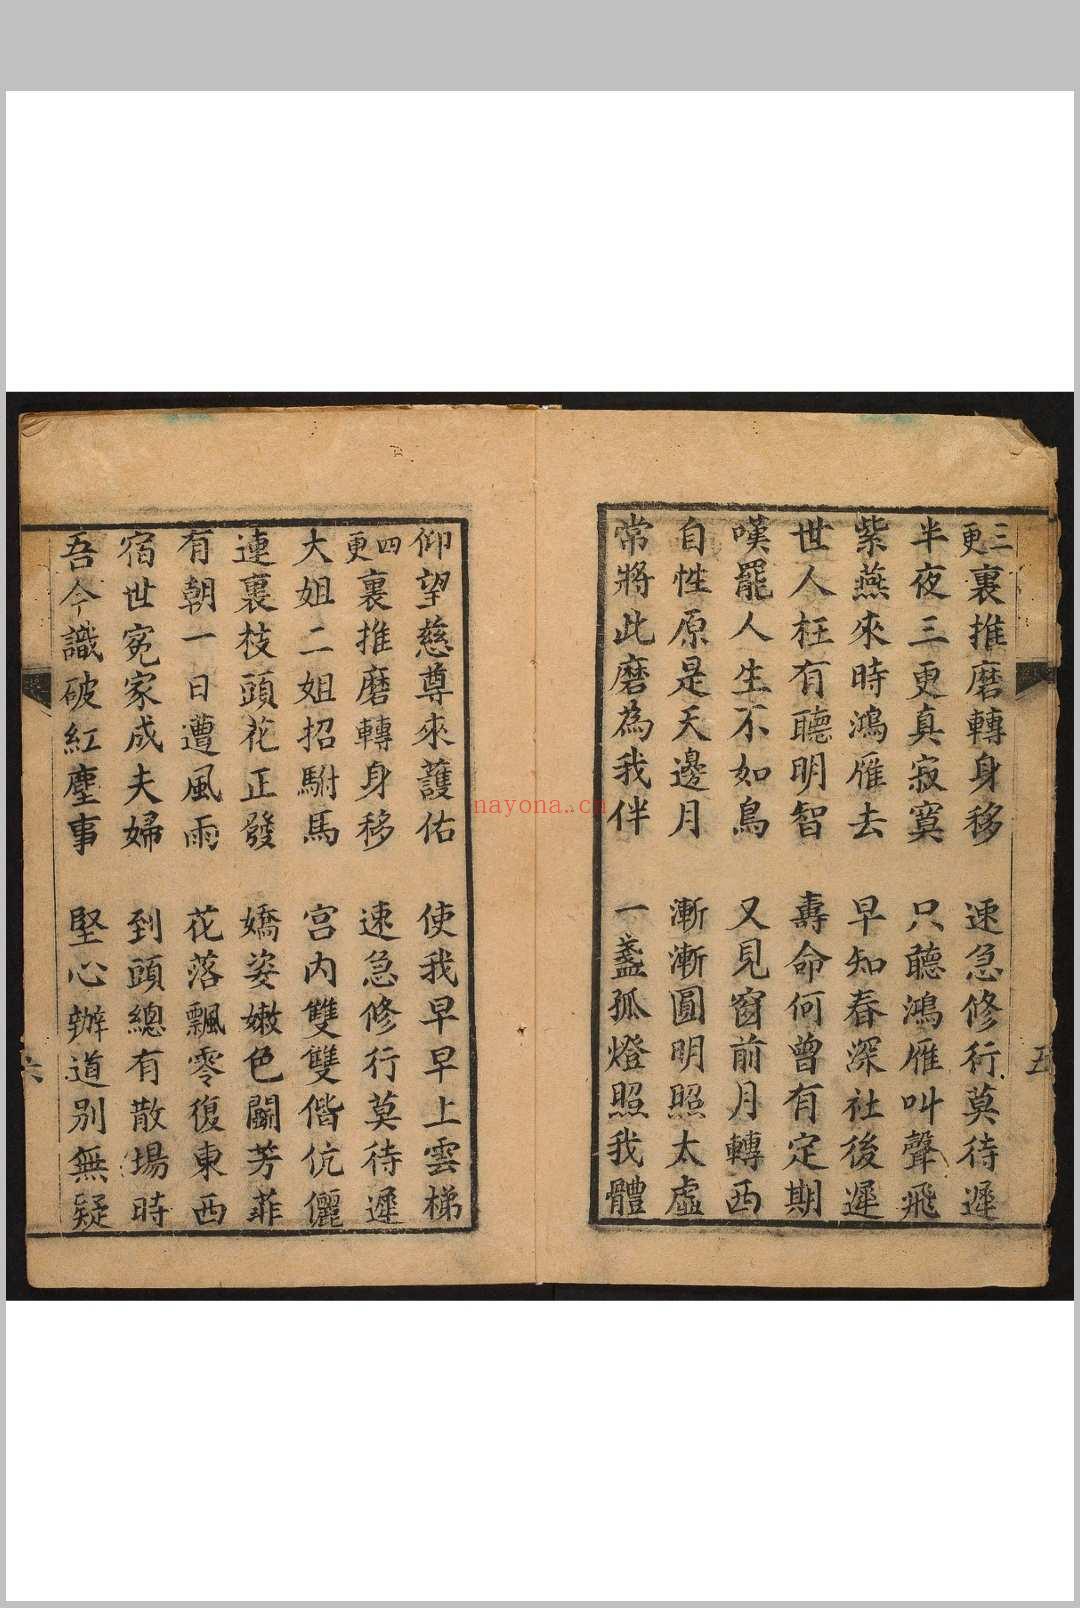 三更裏推磨轉身移　速急修行莫待遲
半夜三更真寂寞　只聽鴻雁叫聲飛
紫燕來時鴻雁去　早知春深社後遲
世人枉有聰明智　壽命何曾有定期
嘆罷人生不如鳥　又見窗前月轉西
自性原是天邊月　漸漸圓明照太虛
常將此磨為我伴　一盞孤燈照我體
五
仰望慈尊來護佑　使我早早上雲梯
四更裏推磨轉身移　速急修行莫待遲
大姐二姐招駙馬　宮内雙雙偕伉儷
連裏枝頭花正發　嬌姿嫩色鬭芳菲
有朝一日遭風雨　花落飄零復東西
宿世冤家成夫婦　到頭總有散場時
吾今識破紅塵事　堅心辦道別無疑
六
nayona.cn